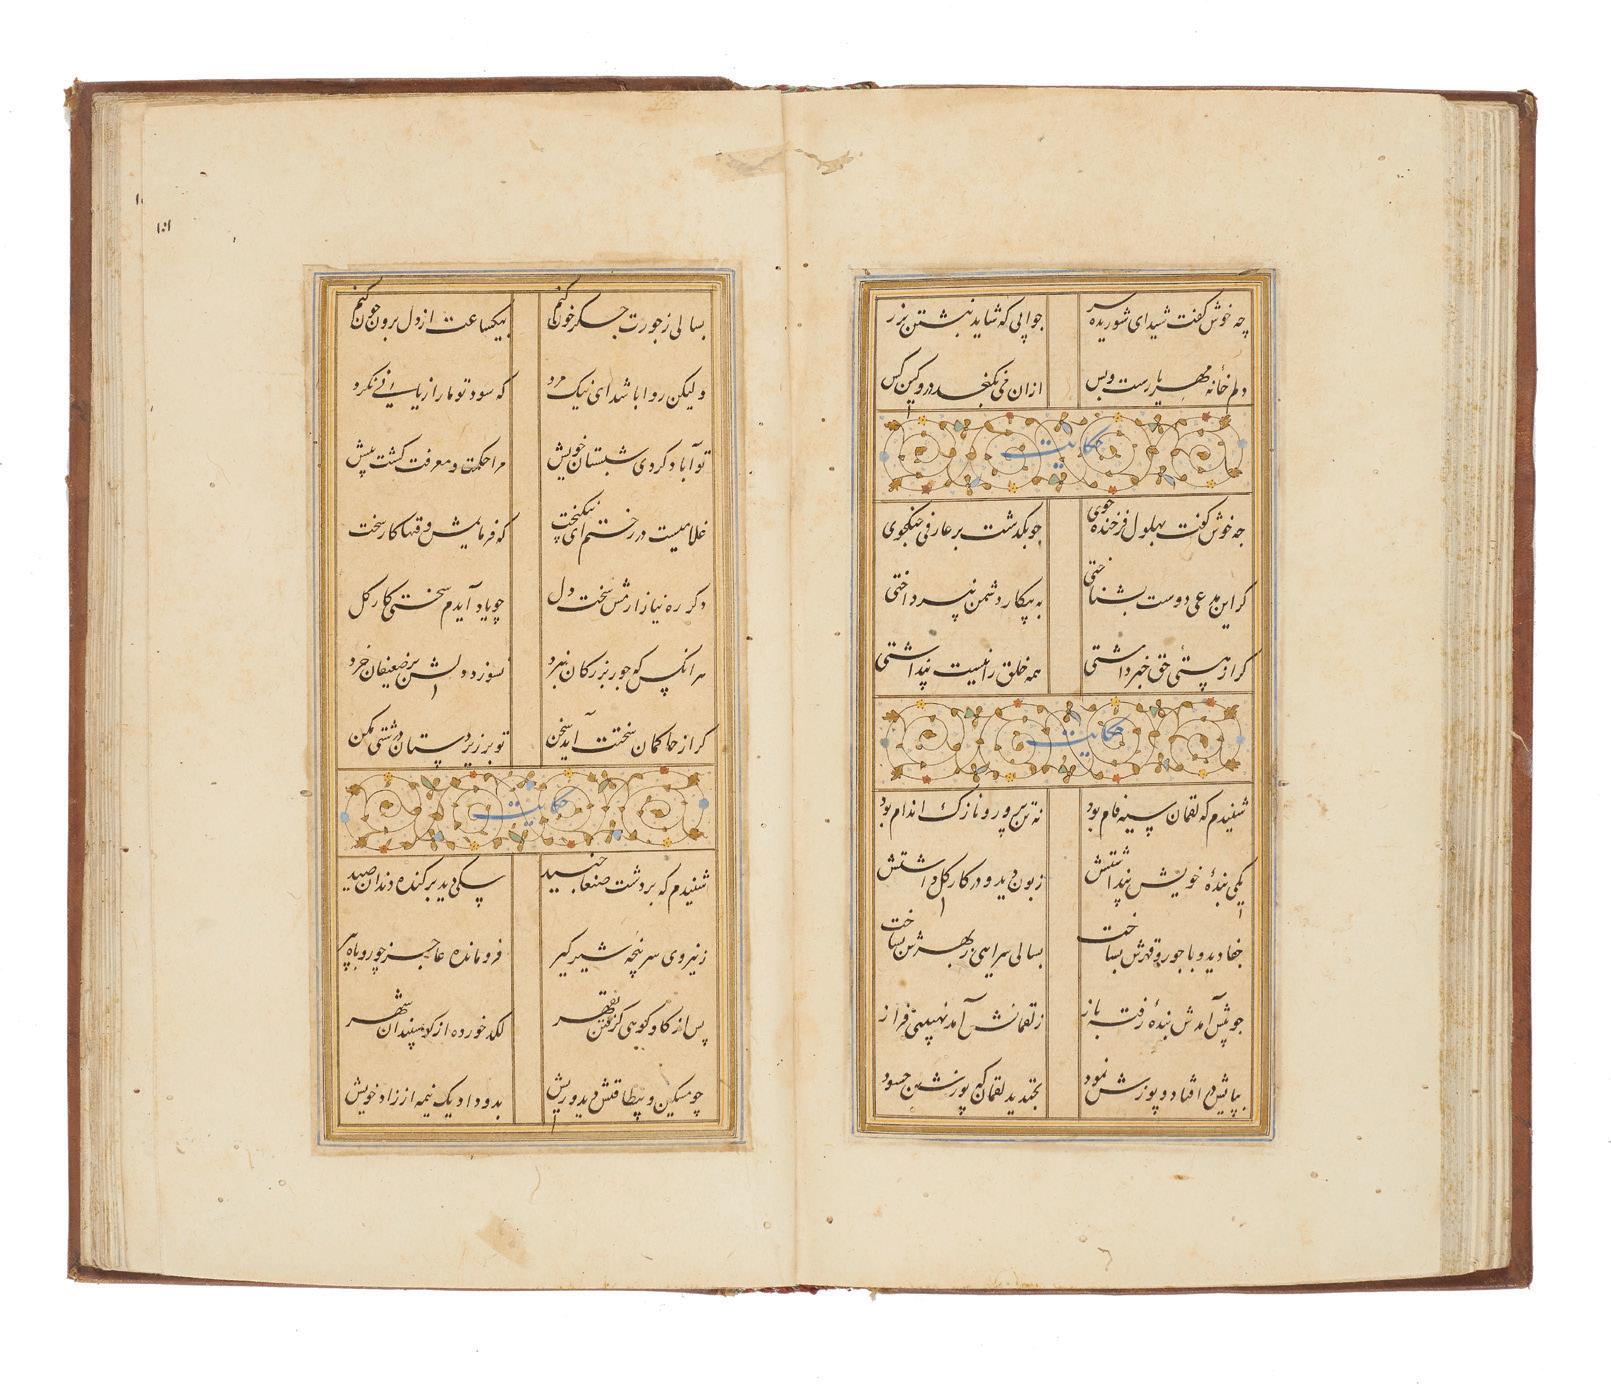 چه خوش گفت شیدای شوریده سر جوابی که شاید نبشتن بزر
دلم خانه مهر یارست و بس ازان می نگنجد درو کین کس
حکایت
چه خوش گفت بهلول فرخنده خوی چو بگذشت بر عارفی جنگجوی
گر این مدعی دوست بشناختی به پیکار دشمن نپرداختی
گر از هستی حق خبر داشتی همه خلق را نیست پنداشتی
حکایت
شنیدم که لقمان سیه فام بود نه تن پرور و نازک اندام بود
یکی بندهٔ خویش پنداشتش زبون دید و در کار گل داشتش
جفا دید و با جور و قهرش بساخت بسالی سرایی ز بهرش بساخت
چو پیش آمدش بندهٔ رفته باز ز لقمانش آمد نهیبی فراز
بپایش در افتاد و پوزش نمود بخندید لقمان که پوزش چسود
بسالی ز جورت جگر خون کنم بیکساعت از دل برون چون کنم
ولیکن روا باشد ای نیک مرد که سود تو ما را زیانی نکرد
تو آباد کردی شبستان خویش مرا حکمت و معرفت گشت بیش
غلامیست در رختم ای نیکبخت که فرمایمش وقتها کار سخت
دگر ره نیازارمش سخت دل چو یاد آیدم سختی کار گل
هر آنکس که جور بزرگان نبرد نسوزد دلش بر ضعیفان خرد
گر از حاکمان سختت آید سخن تو بر زیردستان درشتی مکن
حکایت
شنیدم که بر دشت صنعا جنید سگی دید برکنده دندان صید
ز نیروی سرپنجهٔ شیر گیر فرومانده عاجز چو روباه پیر
پس از گاو کوهی گرفتن بقهر لگد خورده از گوسپندان شهر
چو مسکین و بیطاقتش دید و ریش بدو داد یک نیمه از زاد خویش